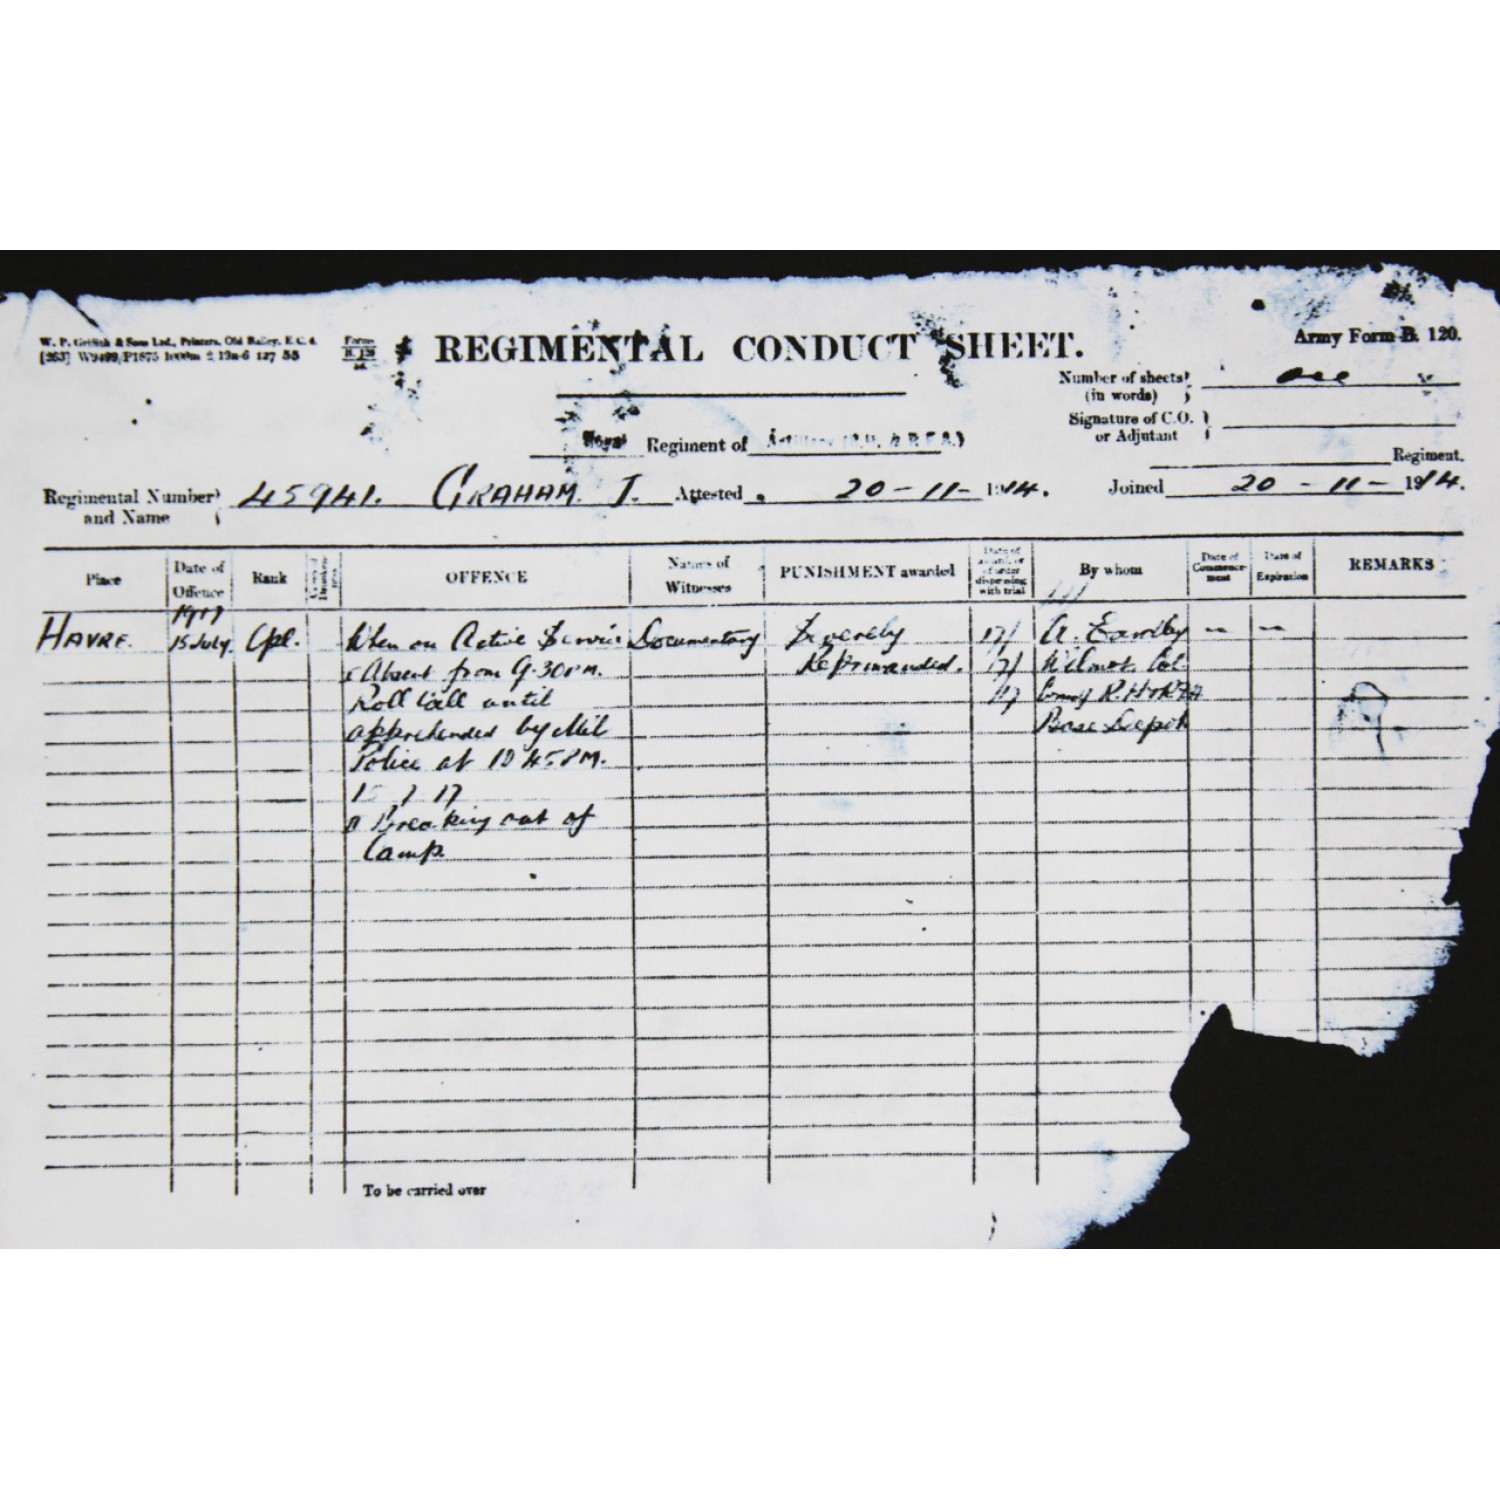 W. P. Griffith & Sons Ltd., Printers, Old Bailey, E.C. 4.
REGIMENTAL CONDUCT SHEET.
Army Form B. 120.
Number of sheets (in words) one
Signature of C.O. or Adjutant
Royal Regiment of Artillery (R.H. & R.F.A.)
Regiment.
Regimental Number and Name 45941. GRAHAM. J. Attested 20 - 11 - 1914. Joined 20 - 11 - 1914.
Place
Date of Offence
Rank
OFFENCE
Names of Witnesses
PUNISHMENT awarded
dispensing with trial
By whom
Date of Commencement
Date of Expiration
REMARKS
1917
HAVRE. 15 July. Cpl. When on Active Service Documentary Severely 17/ A. Eardley — —
Absent from 9.30 P.M. Reprimanded. 7/ Wilmot. Col.
Roll Call until 17 Comdg R.H & R.F.A
apprehended by Mil Base Depot
Police at 10 45 P.M.
15 7 17
Breaking out of
Camp
To be carried over